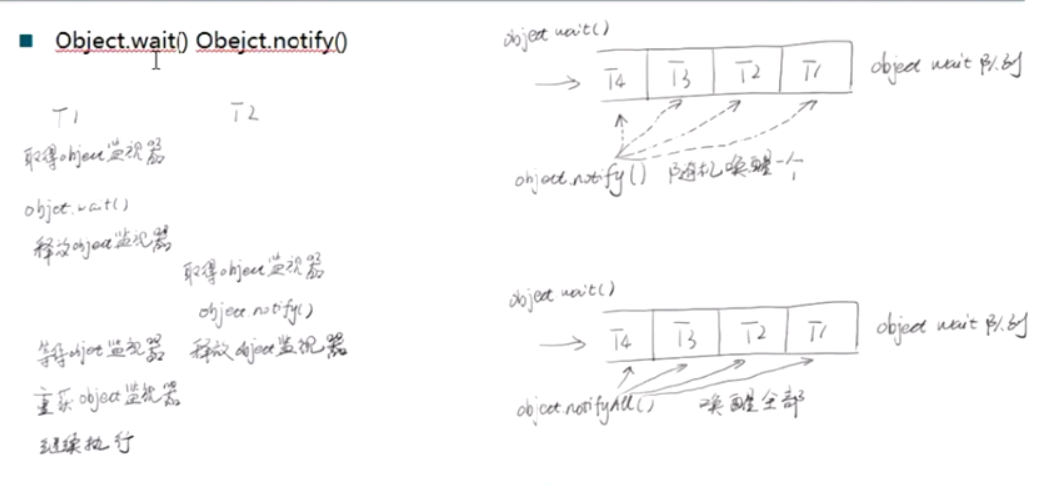 Object.wait() Obejct.notify()
T1 T2
取得object监视器
objet.wait()
释放object监视器
取得object监视器
object.notify()
等待objet监视器 释放object监视器
重获object监视器
继续执行
object wait()
T4 T3 T2 T1 object wait 队列
object.notify() 随机唤醒一个
object wait()
T4 T3 T2 T1 object wait 队列
object.notifyAll() 唤醒全部